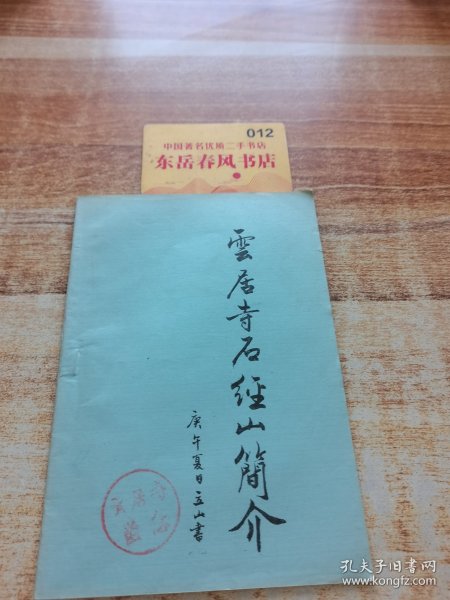 012
中国著名优质二手书店
东岳春风书店
雲居寺石經山簡介
庚午夏日立山書
雲居寺
孔夫子旧书网
www.kongfz.com